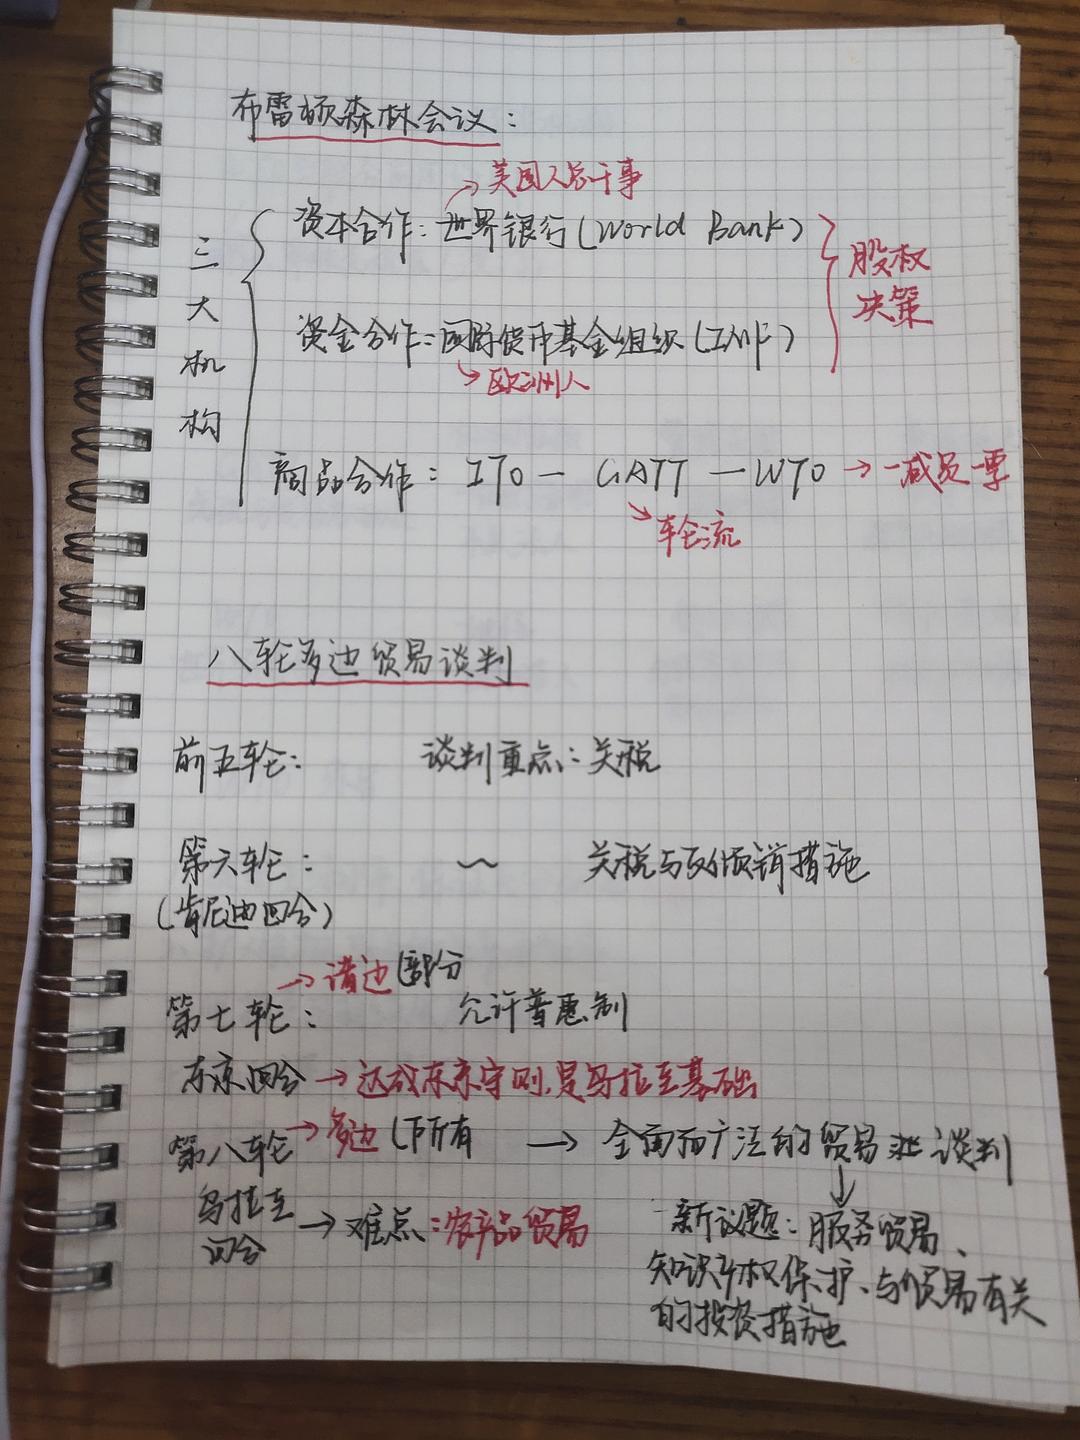 布雷顿森林会议：
美国人总干事
三大机构
资本合作：世界银行(World Bank)
股权决策
资金合作：国际货币基金组织(IMF)
欧洲人
商品合作：ITO — GATT — WTO → 一成员一票
轮流
八轮多边贸易谈判
前五轮： 谈判重点：关税
第六轮： ～ 关税与反倾销措施
(肯尼迪回合)
→ 诸边(部分
第七轮： 允许普惠制
东京回合 → 达成东京守则，是乌拉圭基础
第八轮 → 多边(所有 → 全面而广泛的贸易 谈判
乌拉圭回合 → 难点：农产品贸易
新议题：服务贸易、
知识产权保护、与贸易有关
的投资措施